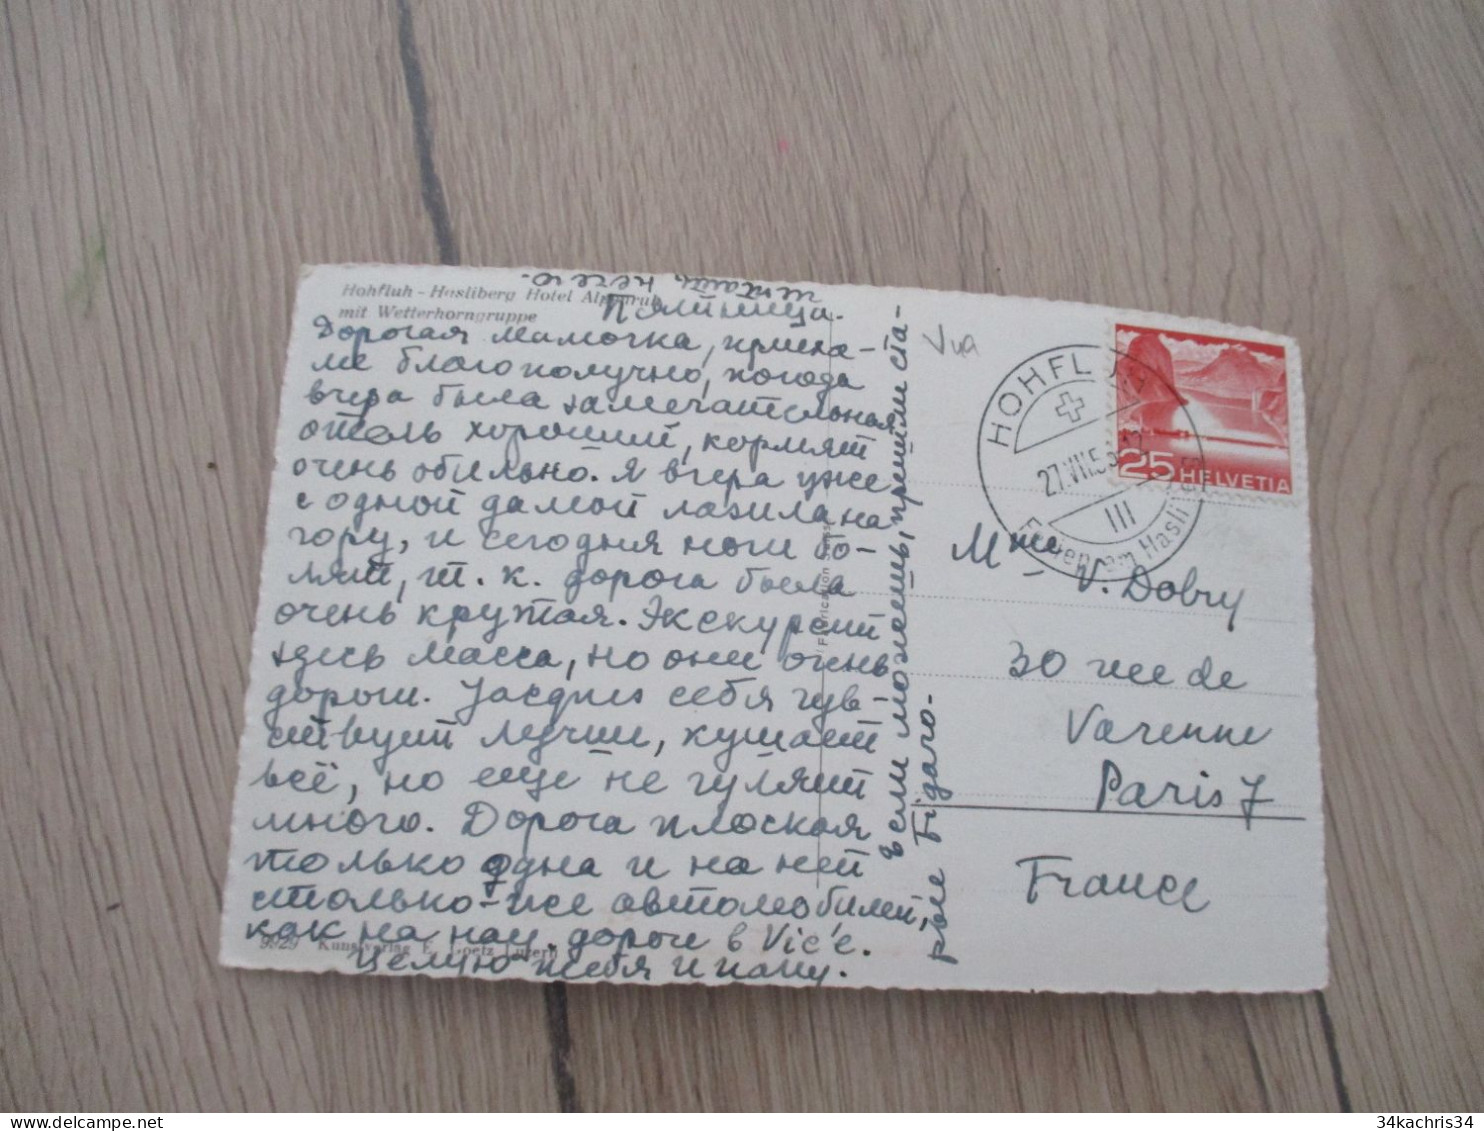 Hohfluh - Hasliberg Hotel Alpenruh
mit Wetterhorngruppe
Пятница.
Дорогая мамочка, приеха-
ли благополучно, погода
вчера была замечательная
отель хороший, кормят
очень обильно. Я вчера уже
с одной дамой лазила на
гору, и сегодня ноги бо-
лят, т. к. дорога была
очень крутая. Экскурсий
здесь масса, но они очень
дороги. Jacques себя чув-
ствует лучше, кушает
всё, но еще не гуляет
много. Дорога плоская
только одна и на ней
столько-же автомобилей,
как на нац. дороге в Vic'e.
Целую тебя и папу.
Если можешь, пришли ста-
рые Figaro.
читать нечего.
9929 Kunstverlag E. Goetz Luzern
Fabrication Suisse
Via
HOHFLUH
27.VII.53
III
Ferien am Hasliberg
25 HELVETIA
Mme V. Dobry
30 rue de
Varenne
Paris 7
France
34kachris34